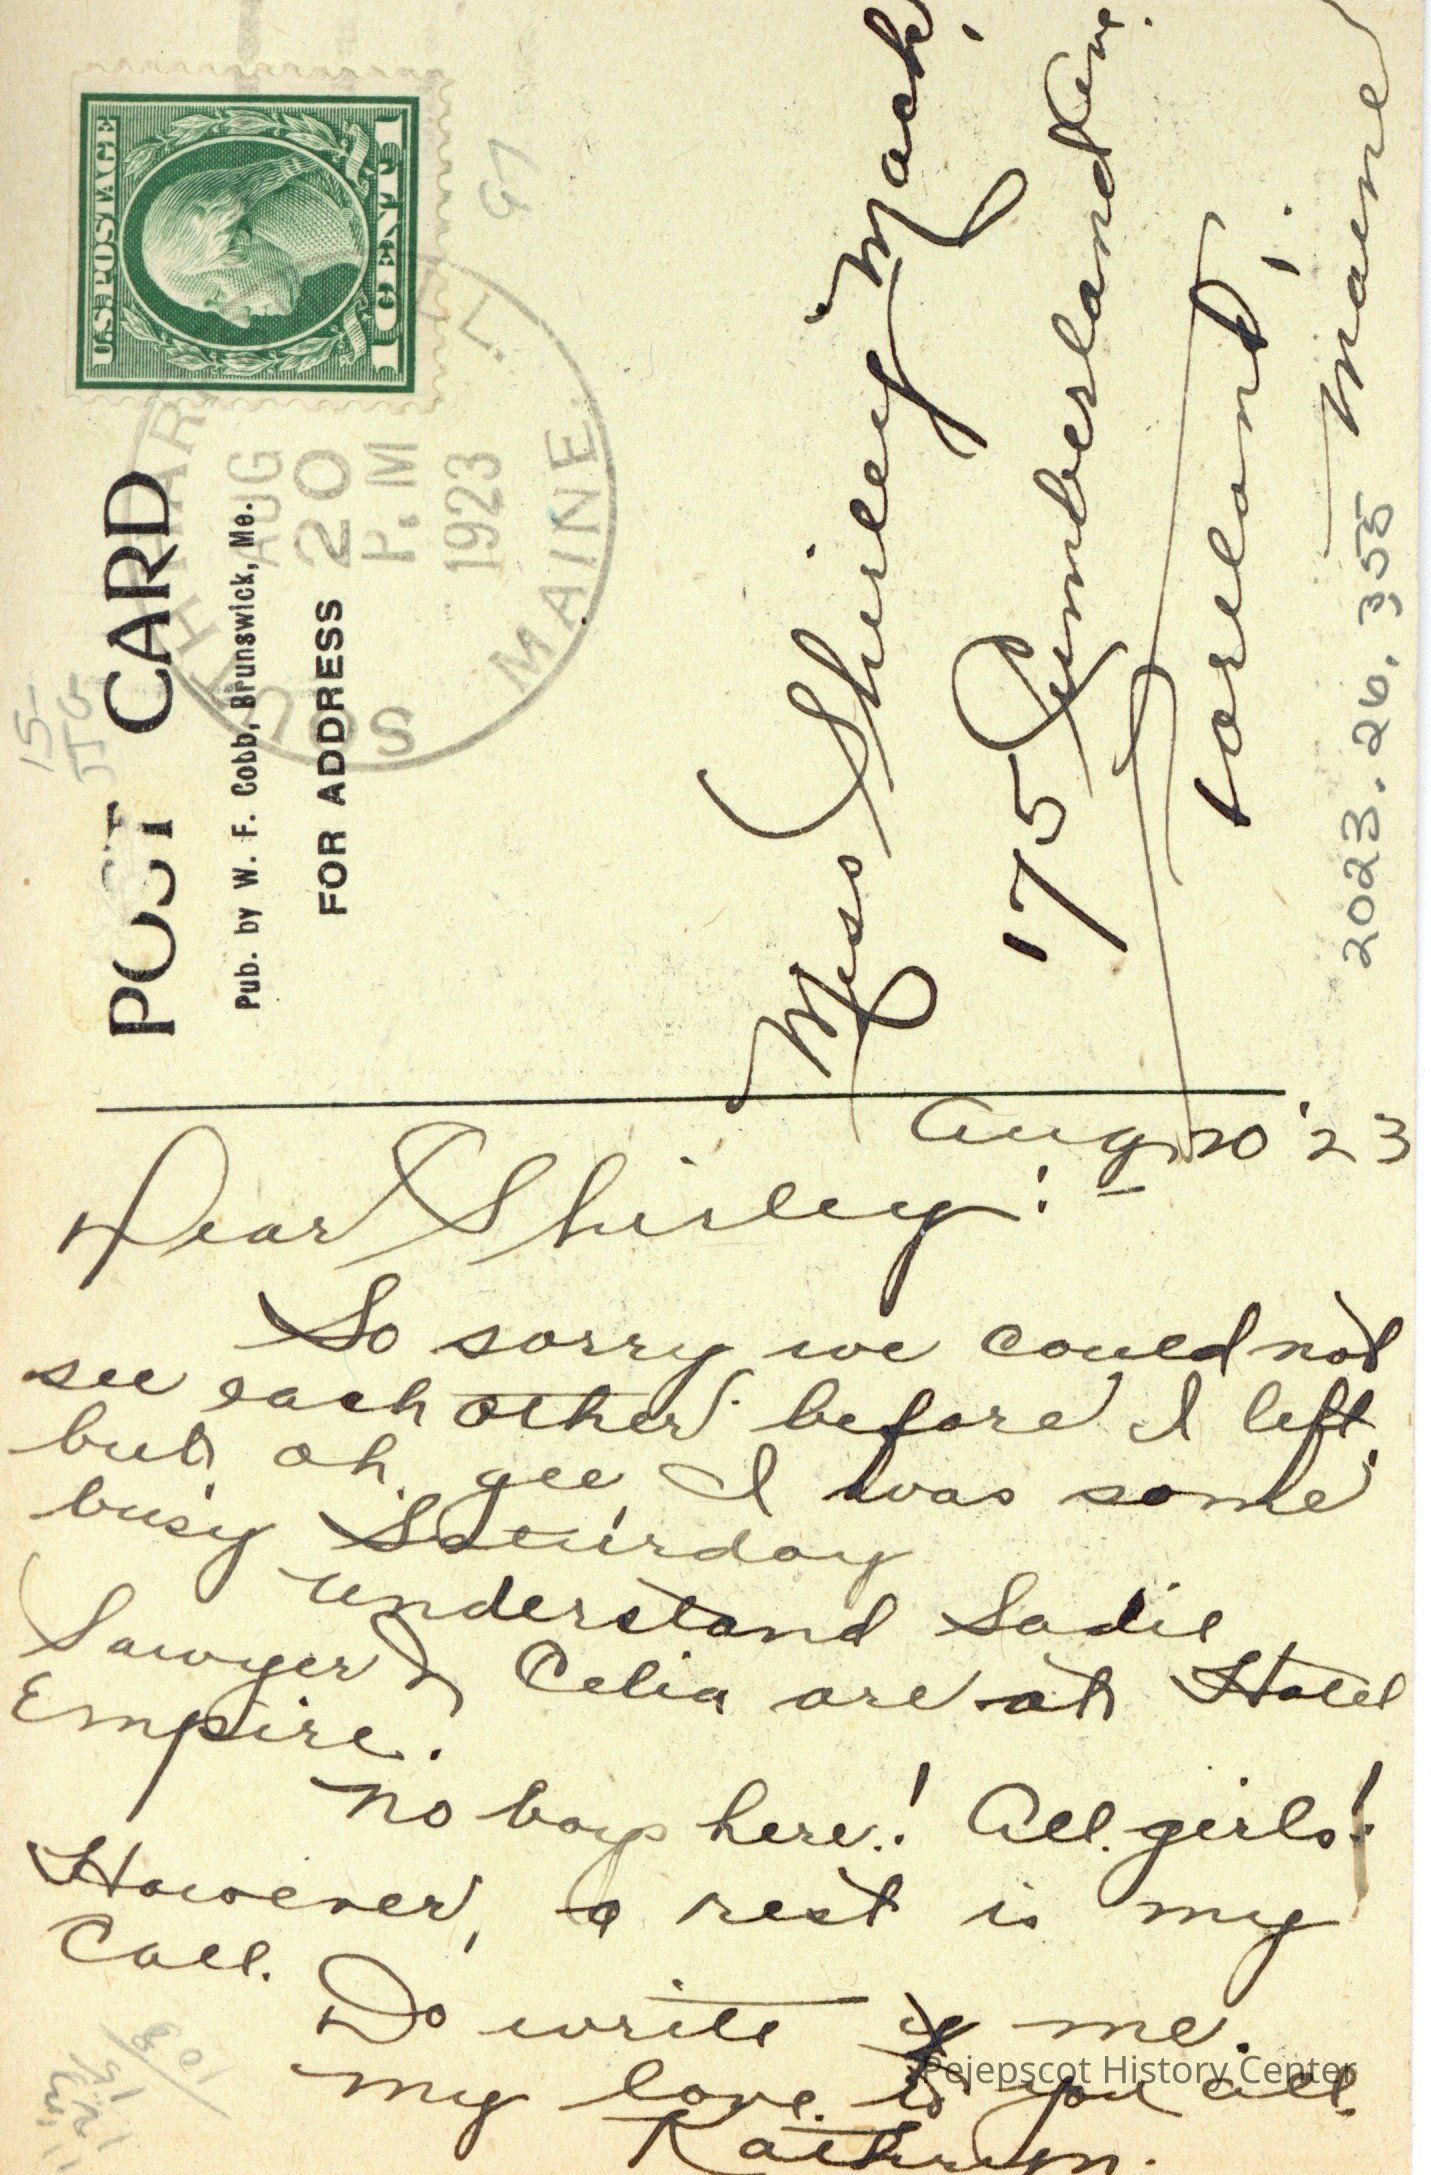 U.S. POSTAGE
1 CENT 1
97
SOUTH HARPSWELL.
MAINE.
AUG
20
P.M
1923
POST CARD
Pub. by W. F. Cobb, Brunswick, Me.
FOR ADDRESS
15-
Miss Shirley Mack,
175 Cumberland Ave.
Portland,
Maine
2023.26.355
Aug 20 '23
Dear Shirley: –
So sorry we could not
see each other before I left,
but, oh, gee, I was some
busy Saturday
understand Sadie
Sawyer & Celia are at Hotel
Empire.
No boys here! All girls!
However, a rest is my
Call.
Do write me.
My love to you all.
Kathryn.
Pejepscot History Center